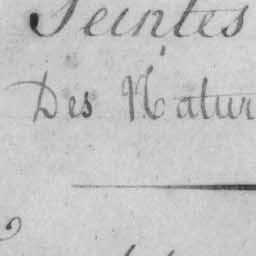 Seintes
Des Natur